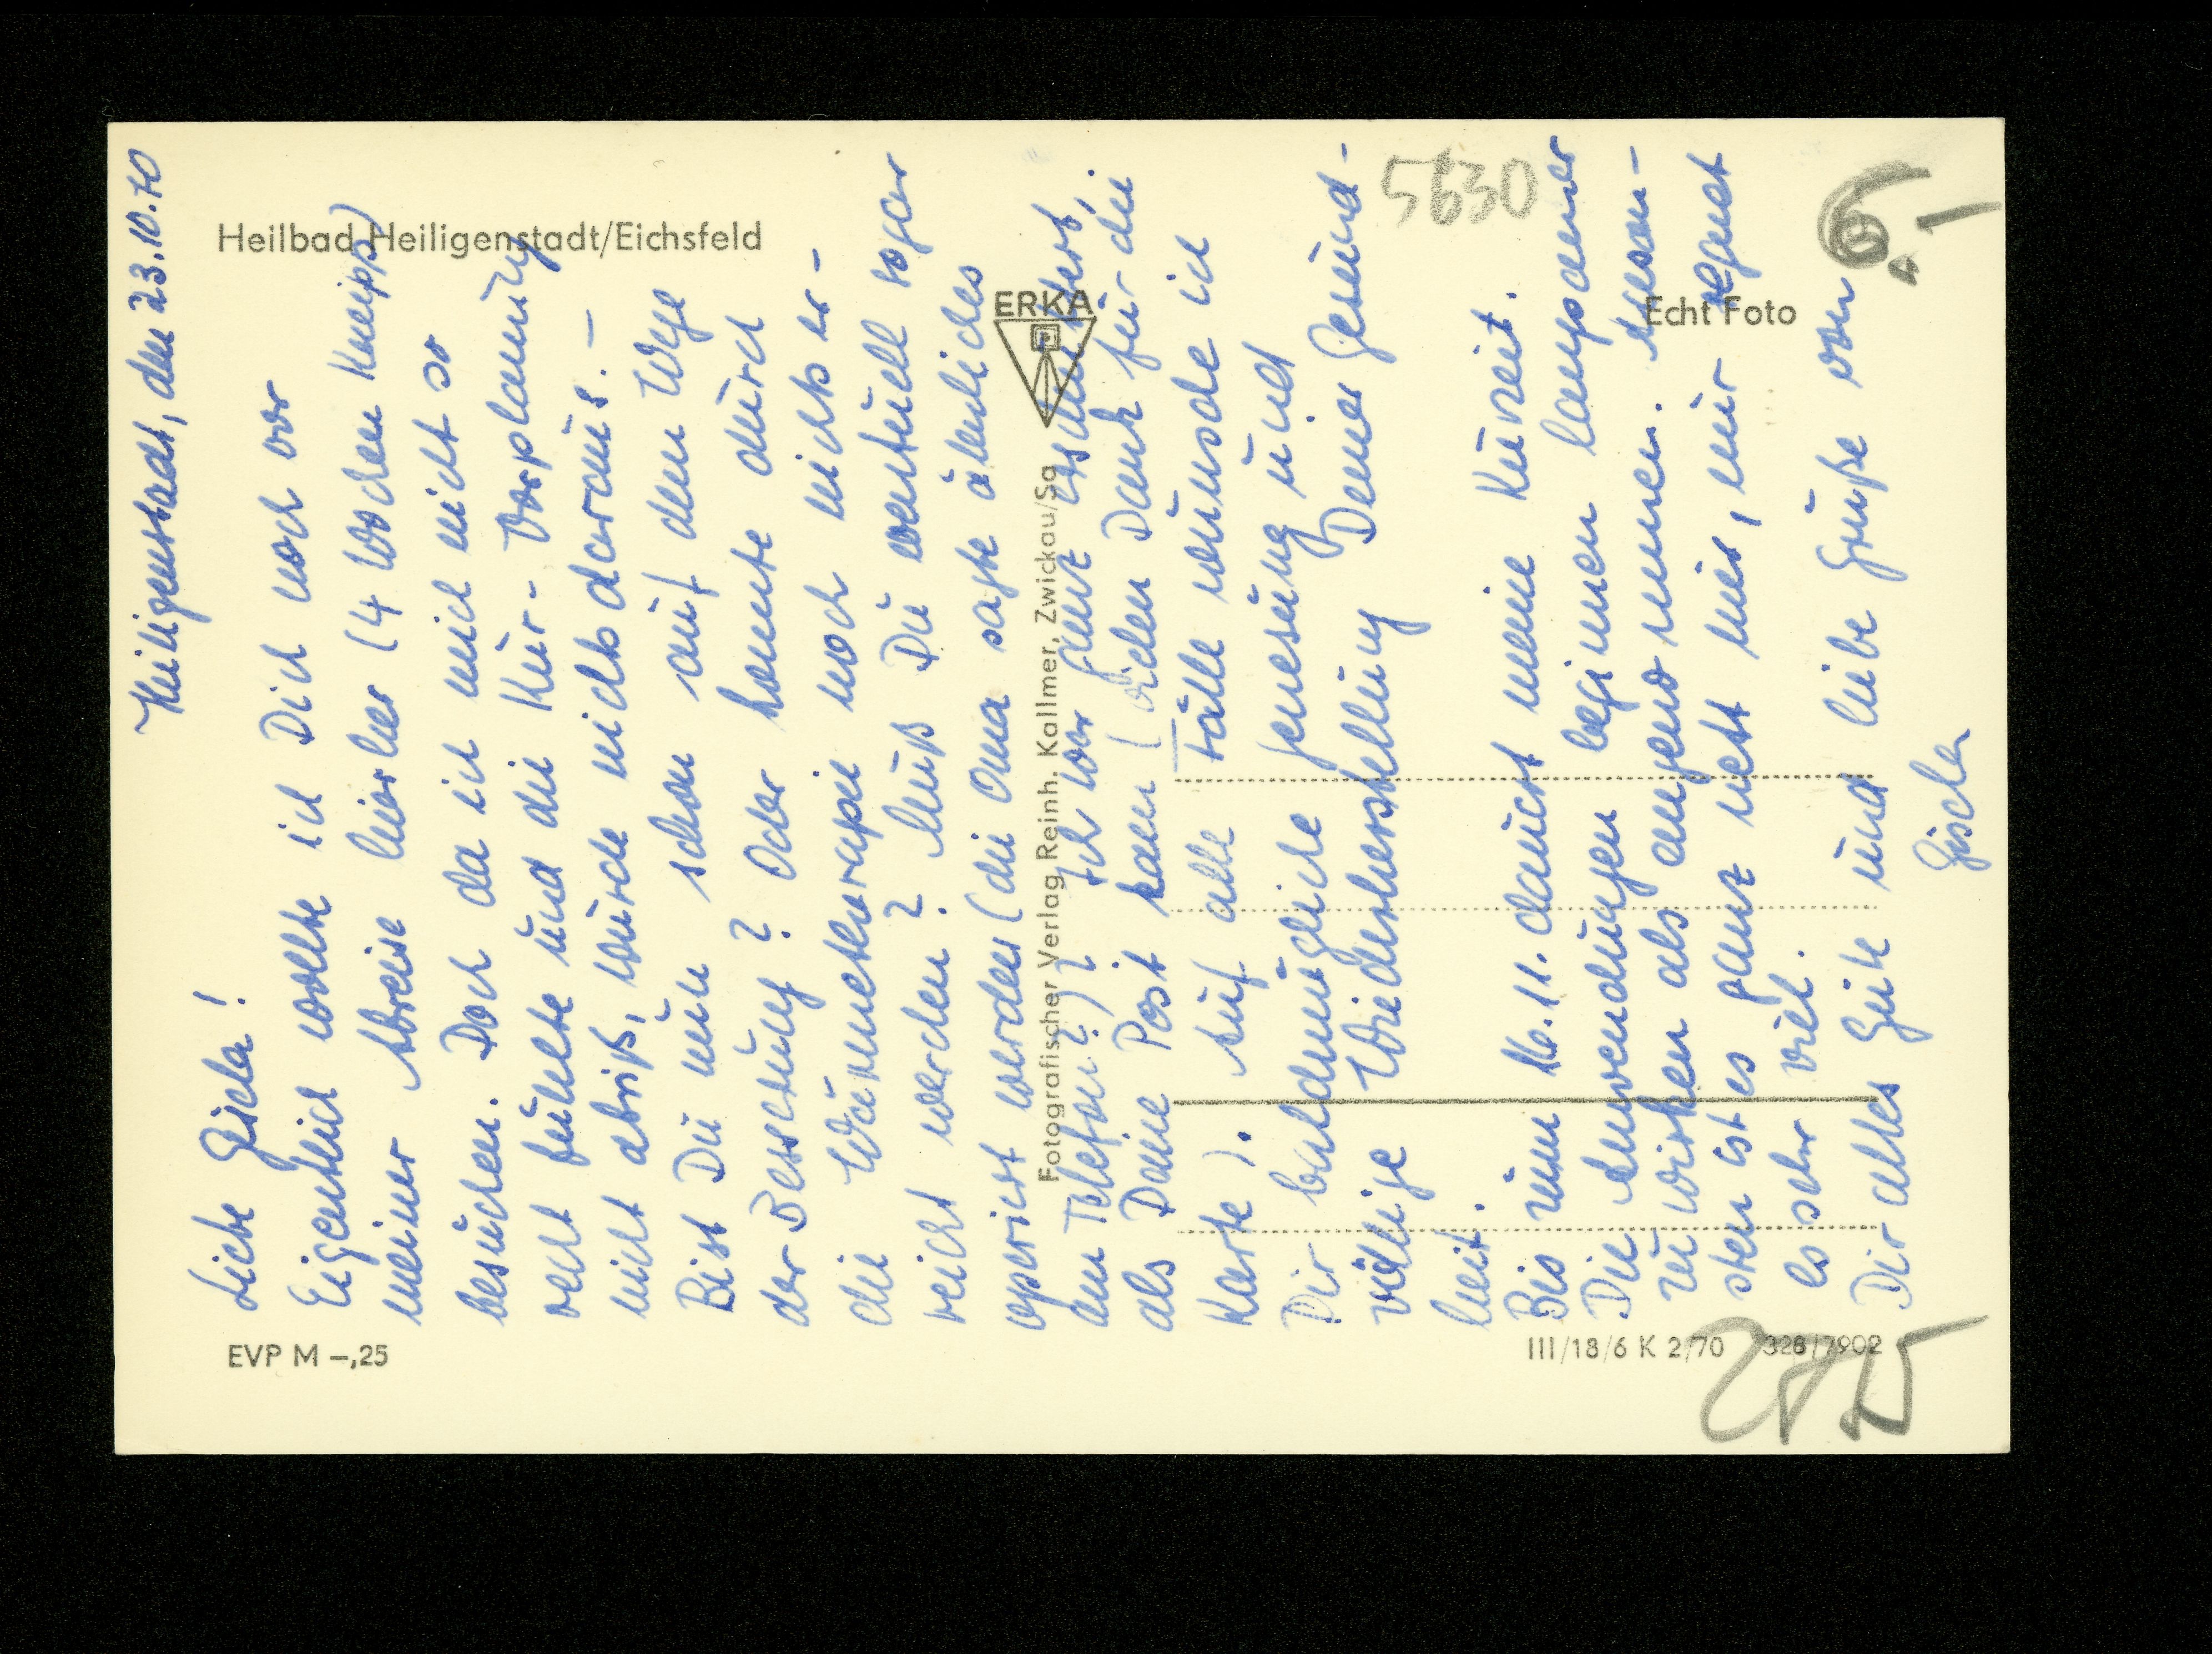 Heiligenstadt, den 23.10.70
Liebe Gisela!
Eigentlich wollte ich Dich noch vor
meiner Abreise hierher (4 Wochen Kneipp)
besuchen. Doch da ich mich nicht so
recht fühlte und die Kür- Vorplanung
nicht abriß, würde nichts daraus. –
Bist Du nun schon auf dem Wege
der Besserung? Oder konnte durch
die Wärmetherapie noch nichts er-
reicht werden? Mußt Du eventuell sogar
operiert werden (die Oma sagte ähnliches
am Telefon?)? Ich war ganz
als Deine Post kam (vielen Dank für die
Karte). Auf alle Fälle wünsche ich
Dir baldmögliche Genesung und
völlige Wiederherstellung Deiner Gesund-
heit.
Bis zum 16.11. dauert meine Kurzeit.
Die Anwendungen beginnen langsamer
zu wirken als angenommen. Ansons-
sten ist es ganz nett hier, nur regnet
es sehr viel.
Dir alles Gute und liebe Grüße von
Gisela
Heilbad Heiligenstadt/Eichsfeld
ERKA
Fotografischer Verlag Reinh. Kallmer, Zwickau/Sa
Echt Foto
EVP M –,25
III/18/6 K 2/70 328/7902
5630